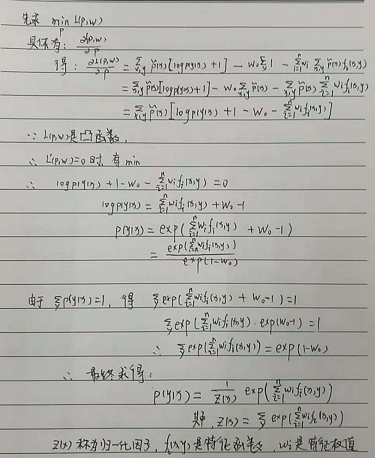 先求 min_P L(P,w)
具体有: ∂L(P,w)/∂P
得: ∂L(P,w)/∂P = Σ_{x,y} p̃(x)[log p(y|x)+1] - w₀Σ_y 1 - Σ_{i=1}^n w_i Σ_{x,y} p̃(x) f_i(x,y)
= Σ_{x,y} p̃(x)[log p(y|x)+1] - w₀ Σ_{x,y} p̃(x) - Σ_{x,y} p̃(x) Σ_{i=1}^n w_i f_i(x,y)
= Σ_{x,y} p̃(x)[log p(y|x) + 1 - w₀ - Σ_{i=1}^n w_i f_i(x,y)]
∵ L(P,w)是凸函数,
∴ L'(P,w)=0 时, 有 min
∴ log p(y|x) + 1 - w₀ - Σ_{i=1}^n w_i f_i(x,y) = 0
log p(y|x) = Σ_{i=1}^n w_i f_i(x,y) + w₀ - 1
P(y|x) = exp(Σ_{i=1}^n w_i f_i(x,y) + w₀ - 1)
= exp(Σ_{i=1}^n w_i f_i(x,y)) / exp(1-w₀)
由于 Σ_y P(y|x) = 1, 得 Σ_y exp(Σ_{i=1}^n w_i f_i(x,y) + w₀ - 1) = 1
Σ_y exp(Σ_{i=1}^n w_i f_i(x,y)) · exp(w₀-1) = 1
∴ Σ_y exp(Σ_{i=1}^n w_i f_i(x,y)) = exp(1-w₀)
∴ 最终求得:
P(y|x) = 1/Z(x) exp(Σ_{i=1}^n w_i f_i(x,y))
其中, Z(x) = Σ_y exp(Σ_{i=1}^n w_i f_i(x,y))
Z(x) 称为归一化因子, f_i(x,y)是特征函数, w_i是特征权值